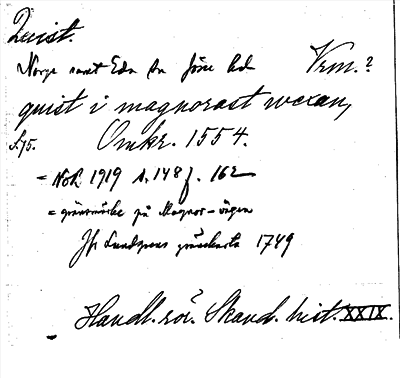 Quist.
Norge samt Eda sn Jösse hd Vrm.?
quist i magnorast wexan,
s. 75. Omkr. 1554.
= NoB 1919 s. 148 f. 162
= gränsmärke på Magnor-vägen
Jfr Lundgrens gränskarta 1749
Handl. rör. Skand. hist. XXIX.